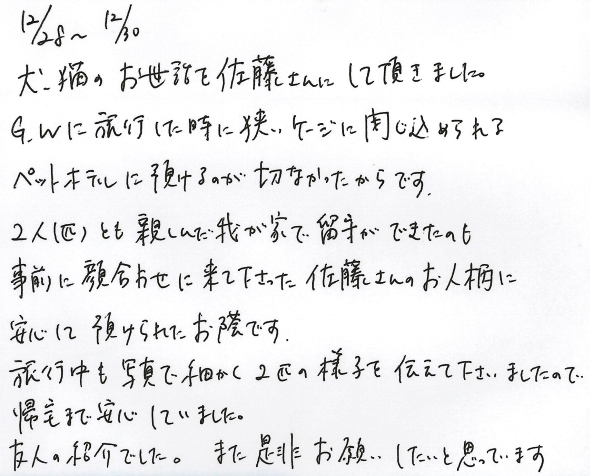 12/28~12/30
犬、猫のお世話を佐藤さんにして頂きました。
G.Wに旅行した時に狭いケージに閉じ込められる
ペットホテルに預けるのが切なかったからです。
2人(匹)とも親しんだ我が家で留守ができたのも
事前に顔合わせに来て下さった佐藤さんのお人柄に
安心して預けられたお陰です。
旅行中も写真で細かく2匹の様子を伝えて下さいましたので
帰宅まで安心していました。
友人の紹介でした。また是非お願いしたいと思っています